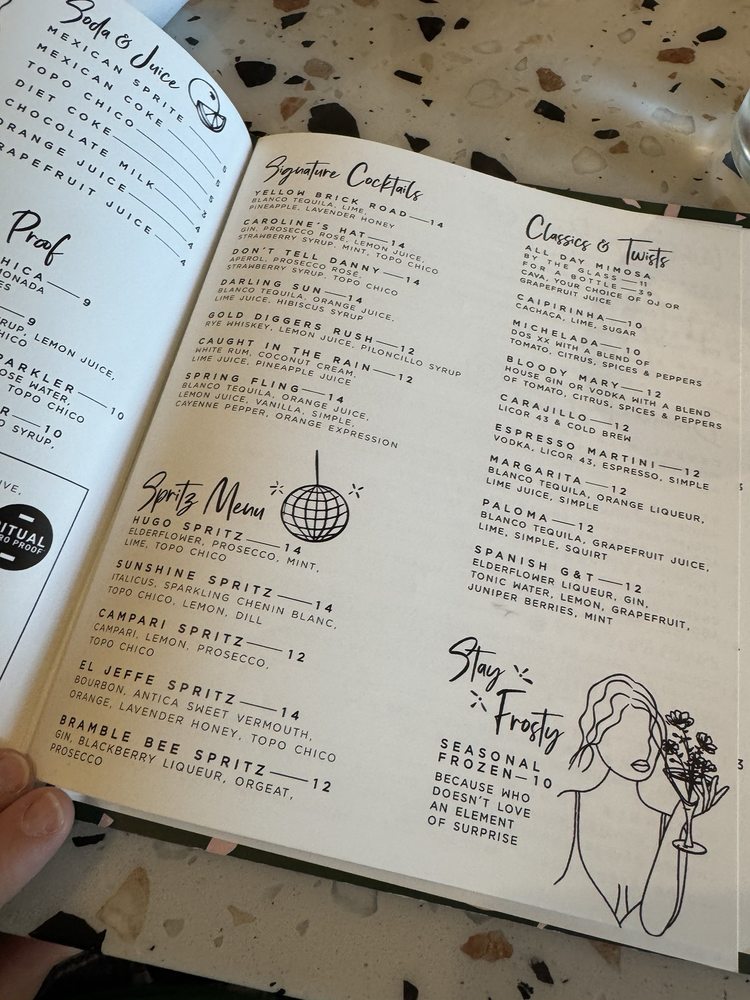 Soda & Juice
MEXICAN SPRITE
MEXICAN COKE 5
TOPO CHICO 5
DIET COKE 5
CHOCOLATE MILK 3
ORANGE JUICE 4
GRAPEFRUIT JUICE 4
Proof
9
9
LEMON JUICE,
10
TOPO CHICO
10
Signature Cocktails
YELLOW BRICK ROAD—14
BLANCO TEQUILA, LIME,
PINEAPPLE, LAVENDER HONEY
CAROLINE'S HAT—14
GIN, PROSECCO ROSÉ, LEMON JUICE,
STRAWBERRY SYRUP, MINT, TOPO CHICO
DON'T TELL DANNY—14
APEROL, PROSECCO ROSÉ,
STRAWBERRY SYRUP, TOPO CHICO
DARLING SUN—14
BLANCO TEQUILA, ORANGE JUICE,
LIME JUICE, HIBISCUS SYRUP
GOLD DIGGERS RUSH—12
RYE WHISKEY, LEMON JUICE, PILONCILLO SYRUP
CAUGHT IN THE RAIN—12
WHITE RUM, COCONUT CREAM,
LIME JUICE, PINEAPPLE JUICE
SPRING FLING—14
BLANCO TEQUILA, ORANGE JUICE,
LEMON JUICE, VANILLA, SIMPLE,
CAYENNE PEPPER, ORANGE EXPRESSION
Spritz Menu
HUGO SPRITZ—14
ELDERFLOWER, PROSECCO, MINT,
LIME, TOPO CHICO
SUNSHINE SPRITZ—14
ITALICUS, SPARKLING CHENIN BLANC,
TOPO CHICO, LEMON, DILL
CAMPARI SPRITZ—12
CAMPARI, LEMON, PROSECCO,
TOPO CHICO
EL JEFFE SPRITZ—14
BOURBON, ANTICA SWEET VERMOUTH,
ORANGE, LAVENDER HONEY, TOPO CHICO
BRAMBLE BEE SPRITZ—12
GIN, BLACKBERRY LIQUEUR, ORGEAT,
PROSECCO
Classics & Twists
ALL DAY MIMOSA
BY THE GLASS—11
FOR A BOTTLE—39
CAVA, YOUR CHOICE OF OJ OR
GRAPEFRUIT JUICE
CAIPIRINHA—10
CACHACA, LIME, SUGAR
MICHELADA—10
DOS XX WITH A BLEND OF
TOMATO, CITRUS, SPICES & PEPPERS
BLOODY MARY—12
HOUSE GIN OR VODKA WITH A BLEND
OF TOMATO, CITRUS, SPICES & PEPPERS
CARAJILLO—12
LICOR 43 & COLD BREW
ESPRESSO MARTINI—12
VODKA, LICOR 43, ESPRESSO, SIMPLE
MARGARITA—12
BLANCO TEQUILA, ORANGE LIQUEUR,
LIME JUICE, SIMPLE
PALOMA—12
BLANCO TEQUILA, GRAPEFRUIT JUICE,
LIME, SIMPLE, SQUIRT
SPANISH G&T—12
ELDERFLOWER LIQUEUR, GIN,
TONIC WATER, LEMON, GRAPEFRUIT,
JUNIPER BERRIES, MINT
Stay
Frosty
SEASONAL
FROZEN—10
BECAUSE WHO
DOESN'T LOVE
AN ELEMENT
OF SURPRISE